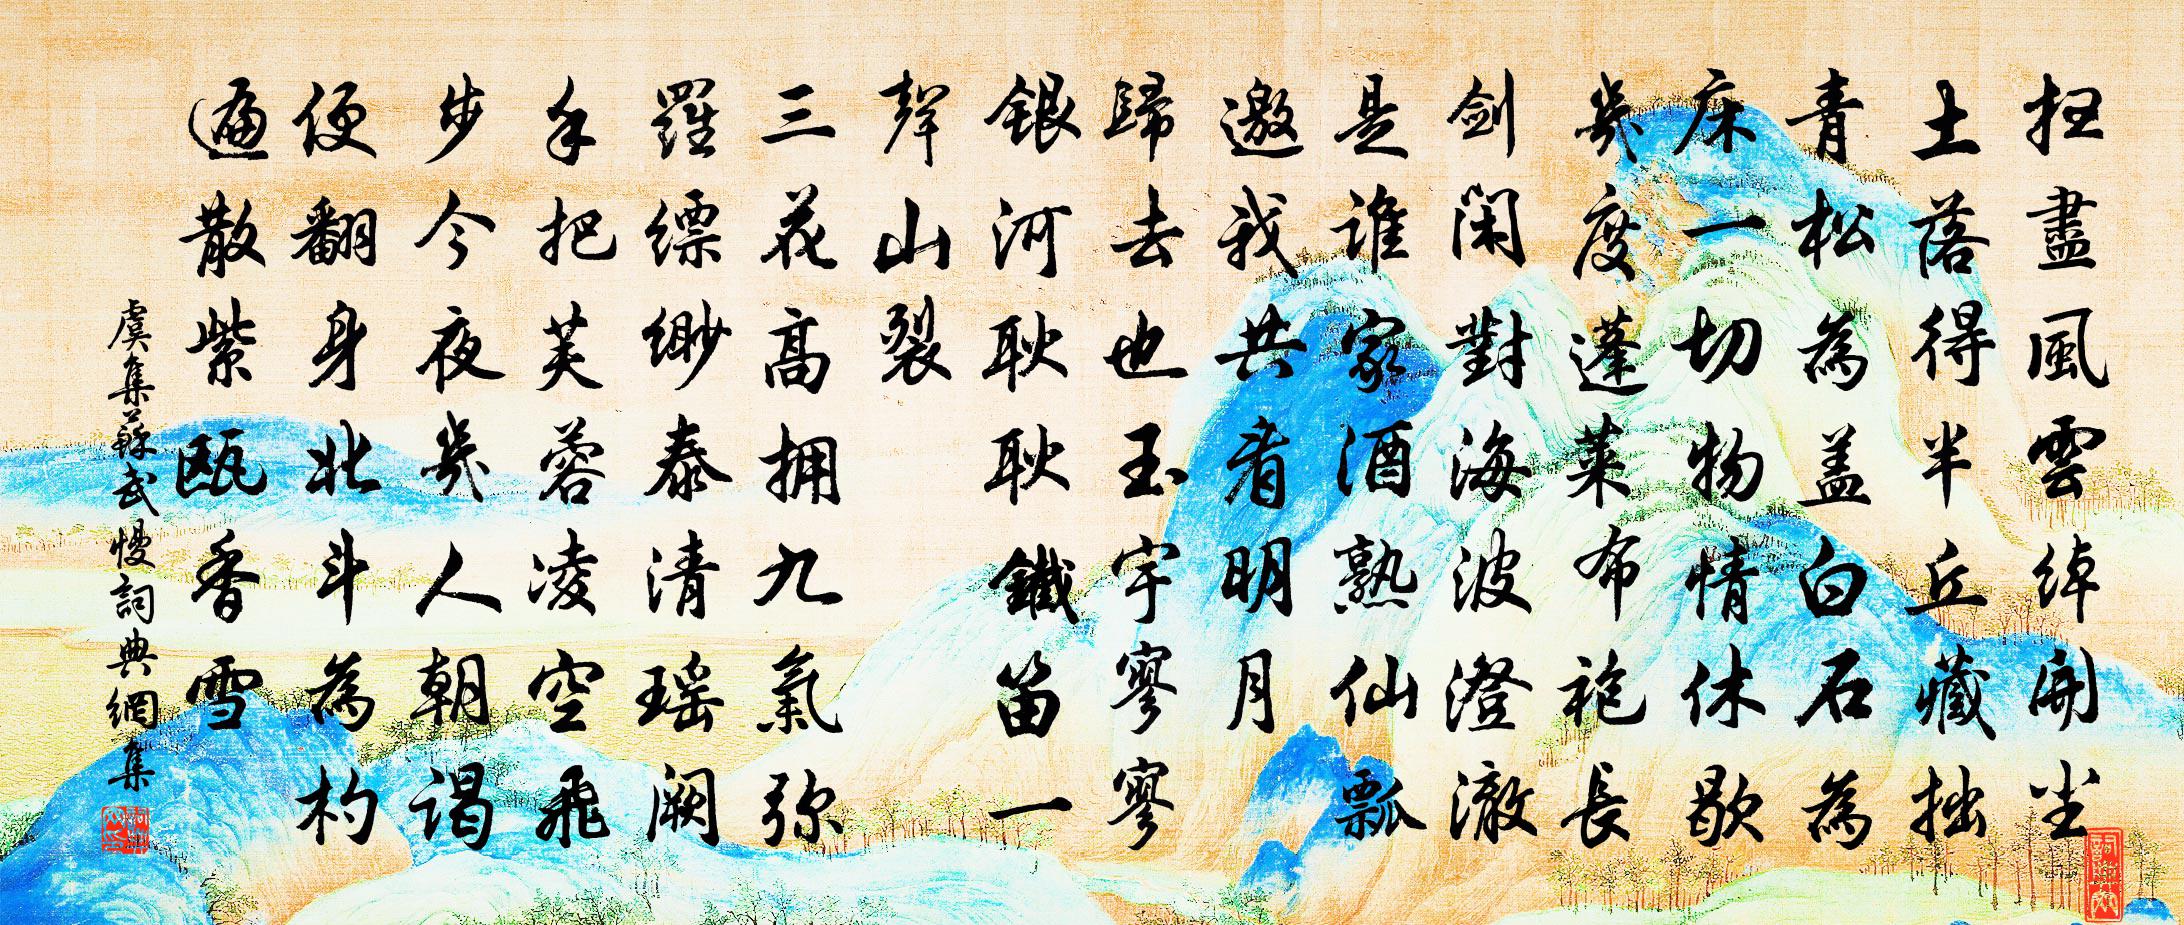 扫盡風雲綽開尘
土落得半丘藏拙
青松為盖白石為
床一切物情休歇
幾度蓬莱布袍長
剑闲對海波澄澈
是谁家酒熟仙瓢
邀我共看明月
歸去也玉宇寥寥
银河耿耿鐵笛一
聲山裂
三花高拥九氣弥
羅缥缈泰清瑶阙
手把芙蓉凌空飛
步今夜幾人朝谒
便翻身北斗為杓
遍散紫瓯香雪
虞集蘇武慢詞典網集